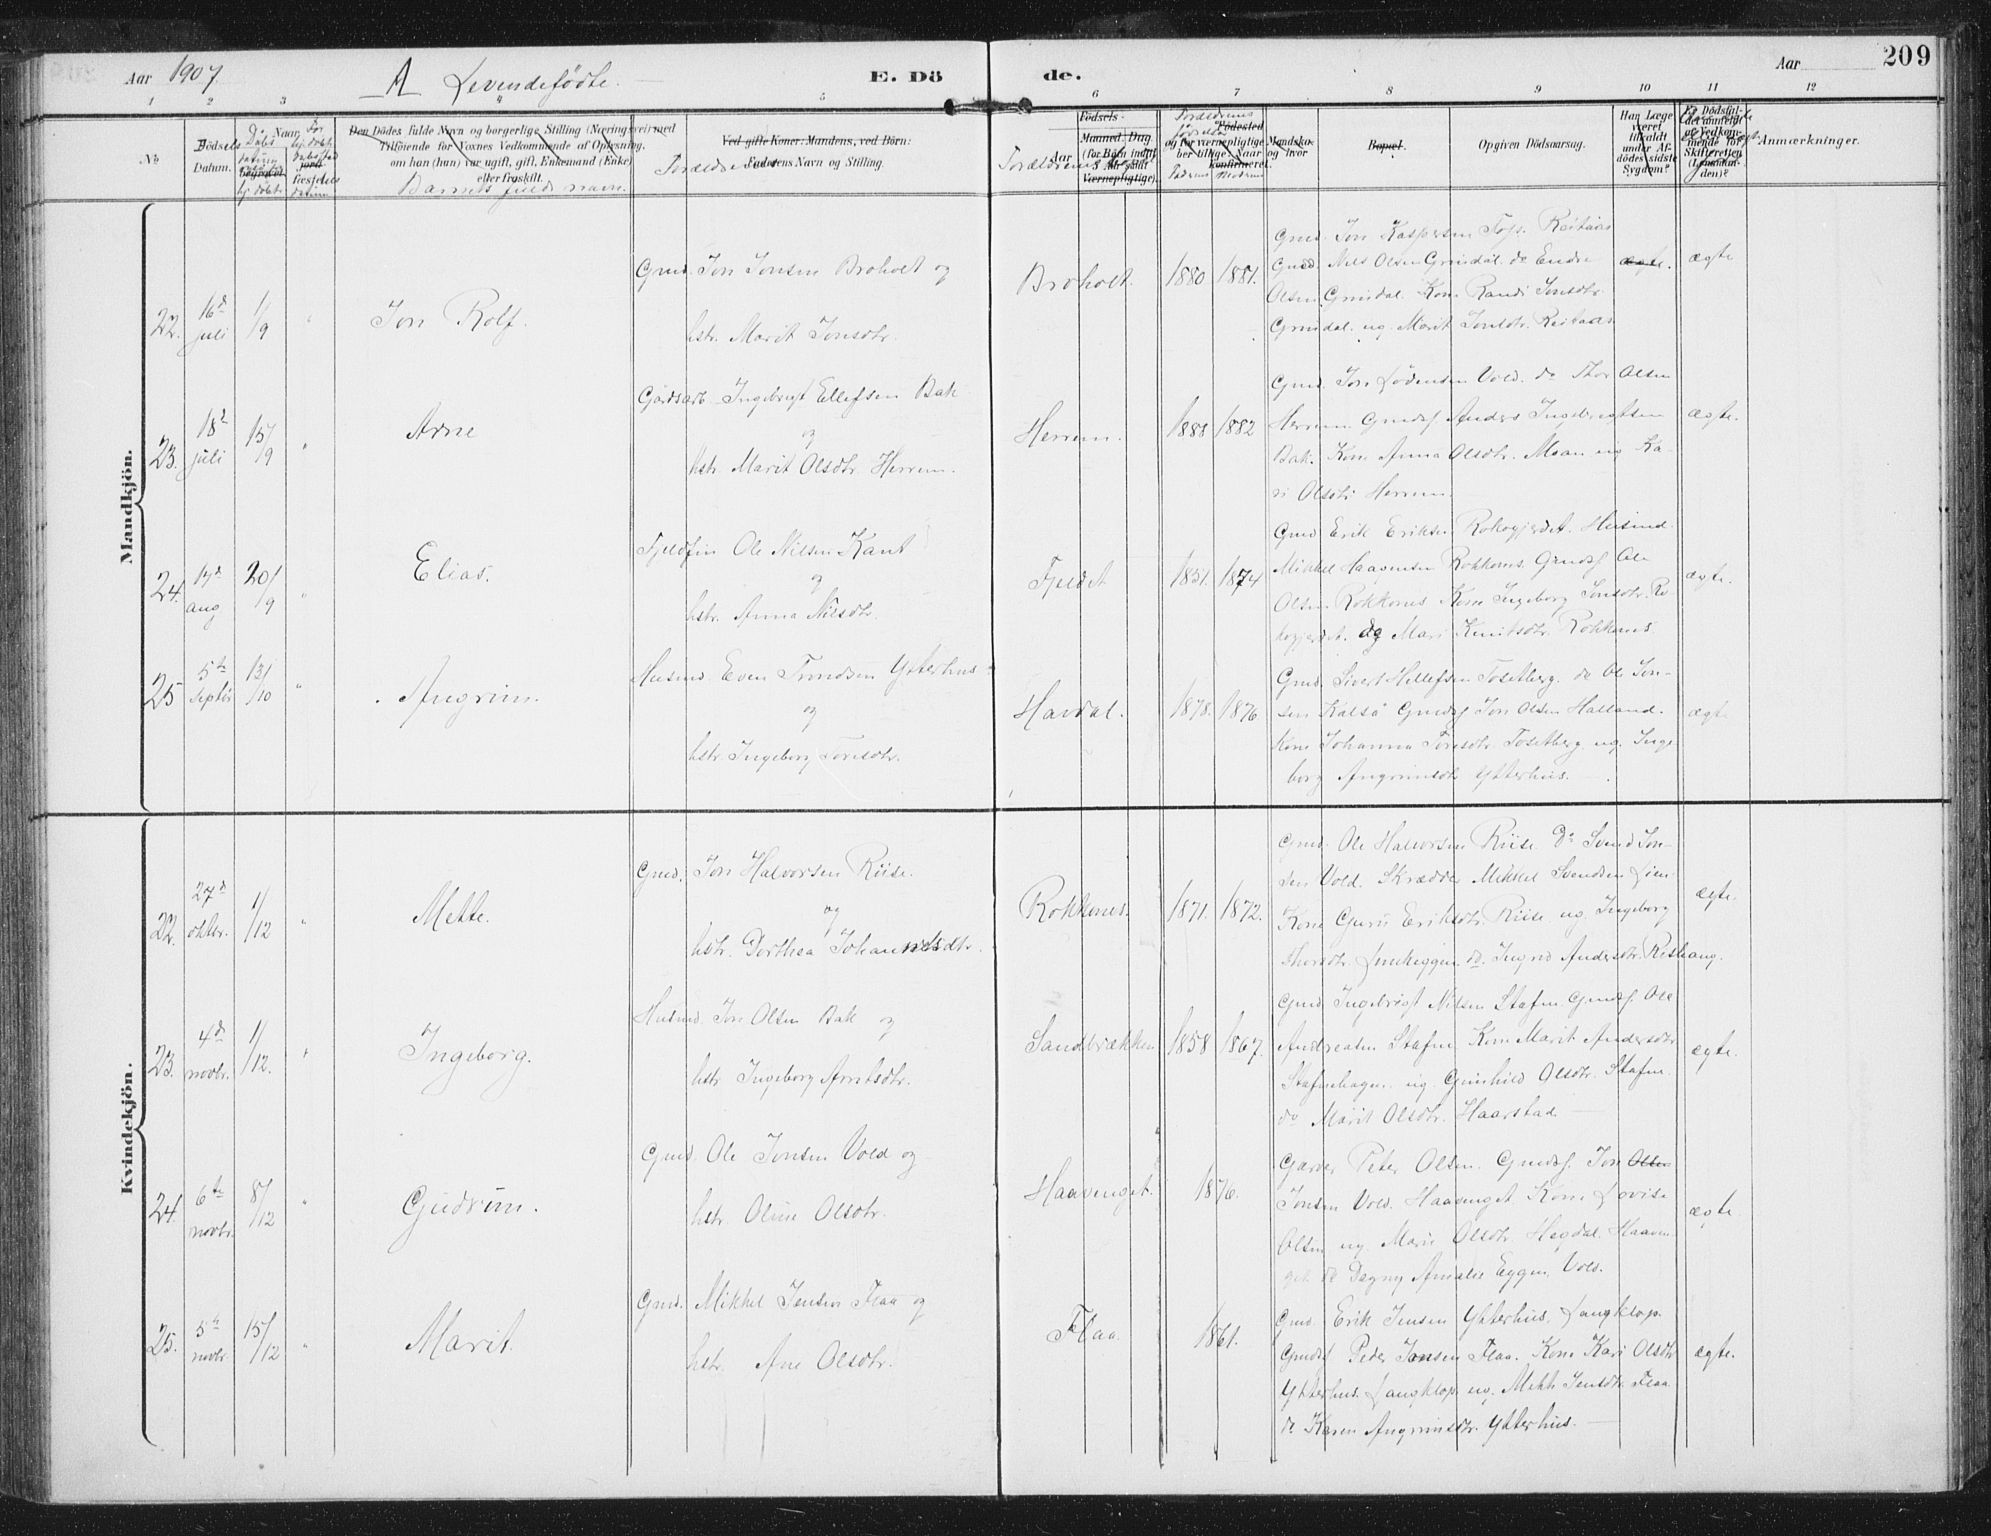 Aar 1907 A Levendefödte. E. Döde. Aar 209
1 2 3 4 5 6 7 8 9 10 11 12
No
Födsels Datum.
Daabs
Naar
Den Dödes fulde Navn og borgerlige Stilling (Næringsvei) med
Tilföiende for Voxnes Vedkommende af Oplysning,
om han (hun) var ugift, gift, Enkemand (Enke)
eller fraskilt.
Barnets fulde navn.
Ved gifte Koner: Mandens, ved Börn:
Faderens Navn og Stilling.
Forældrenes
Födsels-
Maaned, Dag
Aar
(for Börn indtil
Værnepligtige).
Födested
og for værnepligtige
konfirmeret.
Bopæl.
Opgiven Dödsaarsag.
Han Læge
været
tilkaldt
under Af-
dödes sidste
Sygdom?
Er Dödsfal-
det anmeldt
og Vedkom-
mende for
Skifteretten
(Lensman-
den)?
Anmærkninger.
Mandkjön.
22. 16d juli 1/9 " Jon Rolf.
Gmd. Jon Jonsen Broholt og
hstr. Marit Jonsdtr.
Broholt. 1880 1881.
Gmd. Jon Kaspersen Reitaas
Gmd. Nils Olsen Grindal. do Endre
Olsen Grindal. Kone Randi Jonsdtr.
Grindal. og Marit Jonsdtr. Reitaas
ægte. ægte
23. 18d juli 15/9 " Arne
Gårdsarb. Ingebrigt Ellefsen Bak
og
hstr Marit Olsdtr. Herrem.
Herrem. 1883 1882
Gmd. Jon Lödensen Vold. do Thor Olsen
Herrem Gmdsf Anders Ingebrigtsen
Bak. Kone Anna Olsdtr. Moan og Ka-
ri Olsdtr Herrem.
ægte.
24. 17d aug 20/9 " Elias.
Fjeldfin Ole Nilsen Kant
og
hstr. Anna Nilsdtr.
Fjeldet 1851. 1874
Gmd Erik Eriksen Rokogjerdet. Husmd.
Mikkel Haagensen Rokkones. Gmdsf Ole
Olsen Rokkones Kone Ingeborg Jonsdtr. Ro-
kogjerdet. og Mari Knutsdtr. Rokkones.
ægte.
25 5te Septbr 13/10 " Angrim.
Husmd. Even Trondsen Ytterhus
og
hstr Ingeborg Toresdtr.
Havdal. 1878. 1876
Gmd. Sivert Hellefsen Tosetberg. do Ole Jon-
sen Kalsö Gmdsf Jon Olsen Halland.
Kone Johanna Toresdtr. Tosetberg og. Inge
borg Angrimsdtr Ytterhus.
ægte
Kvindekjön.
22. 27d oktbr. 1/12 " Mette.
Gmd. Jon Halvorsen Riise.
og
hstr. Dorthea Johannesdtr.
Rokkones. 1871. 1872.
Gmd. Ole Halvorsen Riise. do Svend Jon-
sen Vold. Skrædder Mikkel Svendsen Lien
Kone Guru Eriksdtr. Riise og. Ingeborg
Thorsdtr. do. Ingrid Andersdtr. Reshaug.
ægte.
23. 4de novbr. 1/12. " Ingeborg.
Husmd. Jon Olsen Bak og
hstr. Ingeborg Arntsdtr.
Sandbrækken 1858 1867.
Gmd Ingebrigt Nilsen Stafne. Gmdsf. Ole
Andreasen Stafne Kone Marit Andersdtr
Stafnehagen. og Gunhild Olsdtr. Stafne.
do Marit Olsdtr. Haarstad
ægte.
24. 6te novbr. 8/12 " Gudrun.
Gmd. Ole Jonsen Vold og
hstr. Oline Olsdtr.
Haavenget. 1876.
Garver Peter Olsen. Gmdsf. Jon Olsen
Jonsen Vold. Haavenget Kone Lovise
Olsen og Marie Olsdtr. Hegdal. Haaven-
get. do Dagny Amalie Eggen, Vold.
ægte.
25. 5te novbr. 15/12 " Marit.
Gmd. Mikkel Jensen Flaa og
hstr. Ane Olsdtr.
Flaa. 1861.
Gmd. Erik Jensen Ytterhus, Langklop.
Gmdsf Peder Jonsen Flaa. Kone Kari Olsdtr
Ytterhus. Langklop og. Mekk Jensdtr. Flaa
do Karen Angrimsdtr. Ytterhus.
ægte.